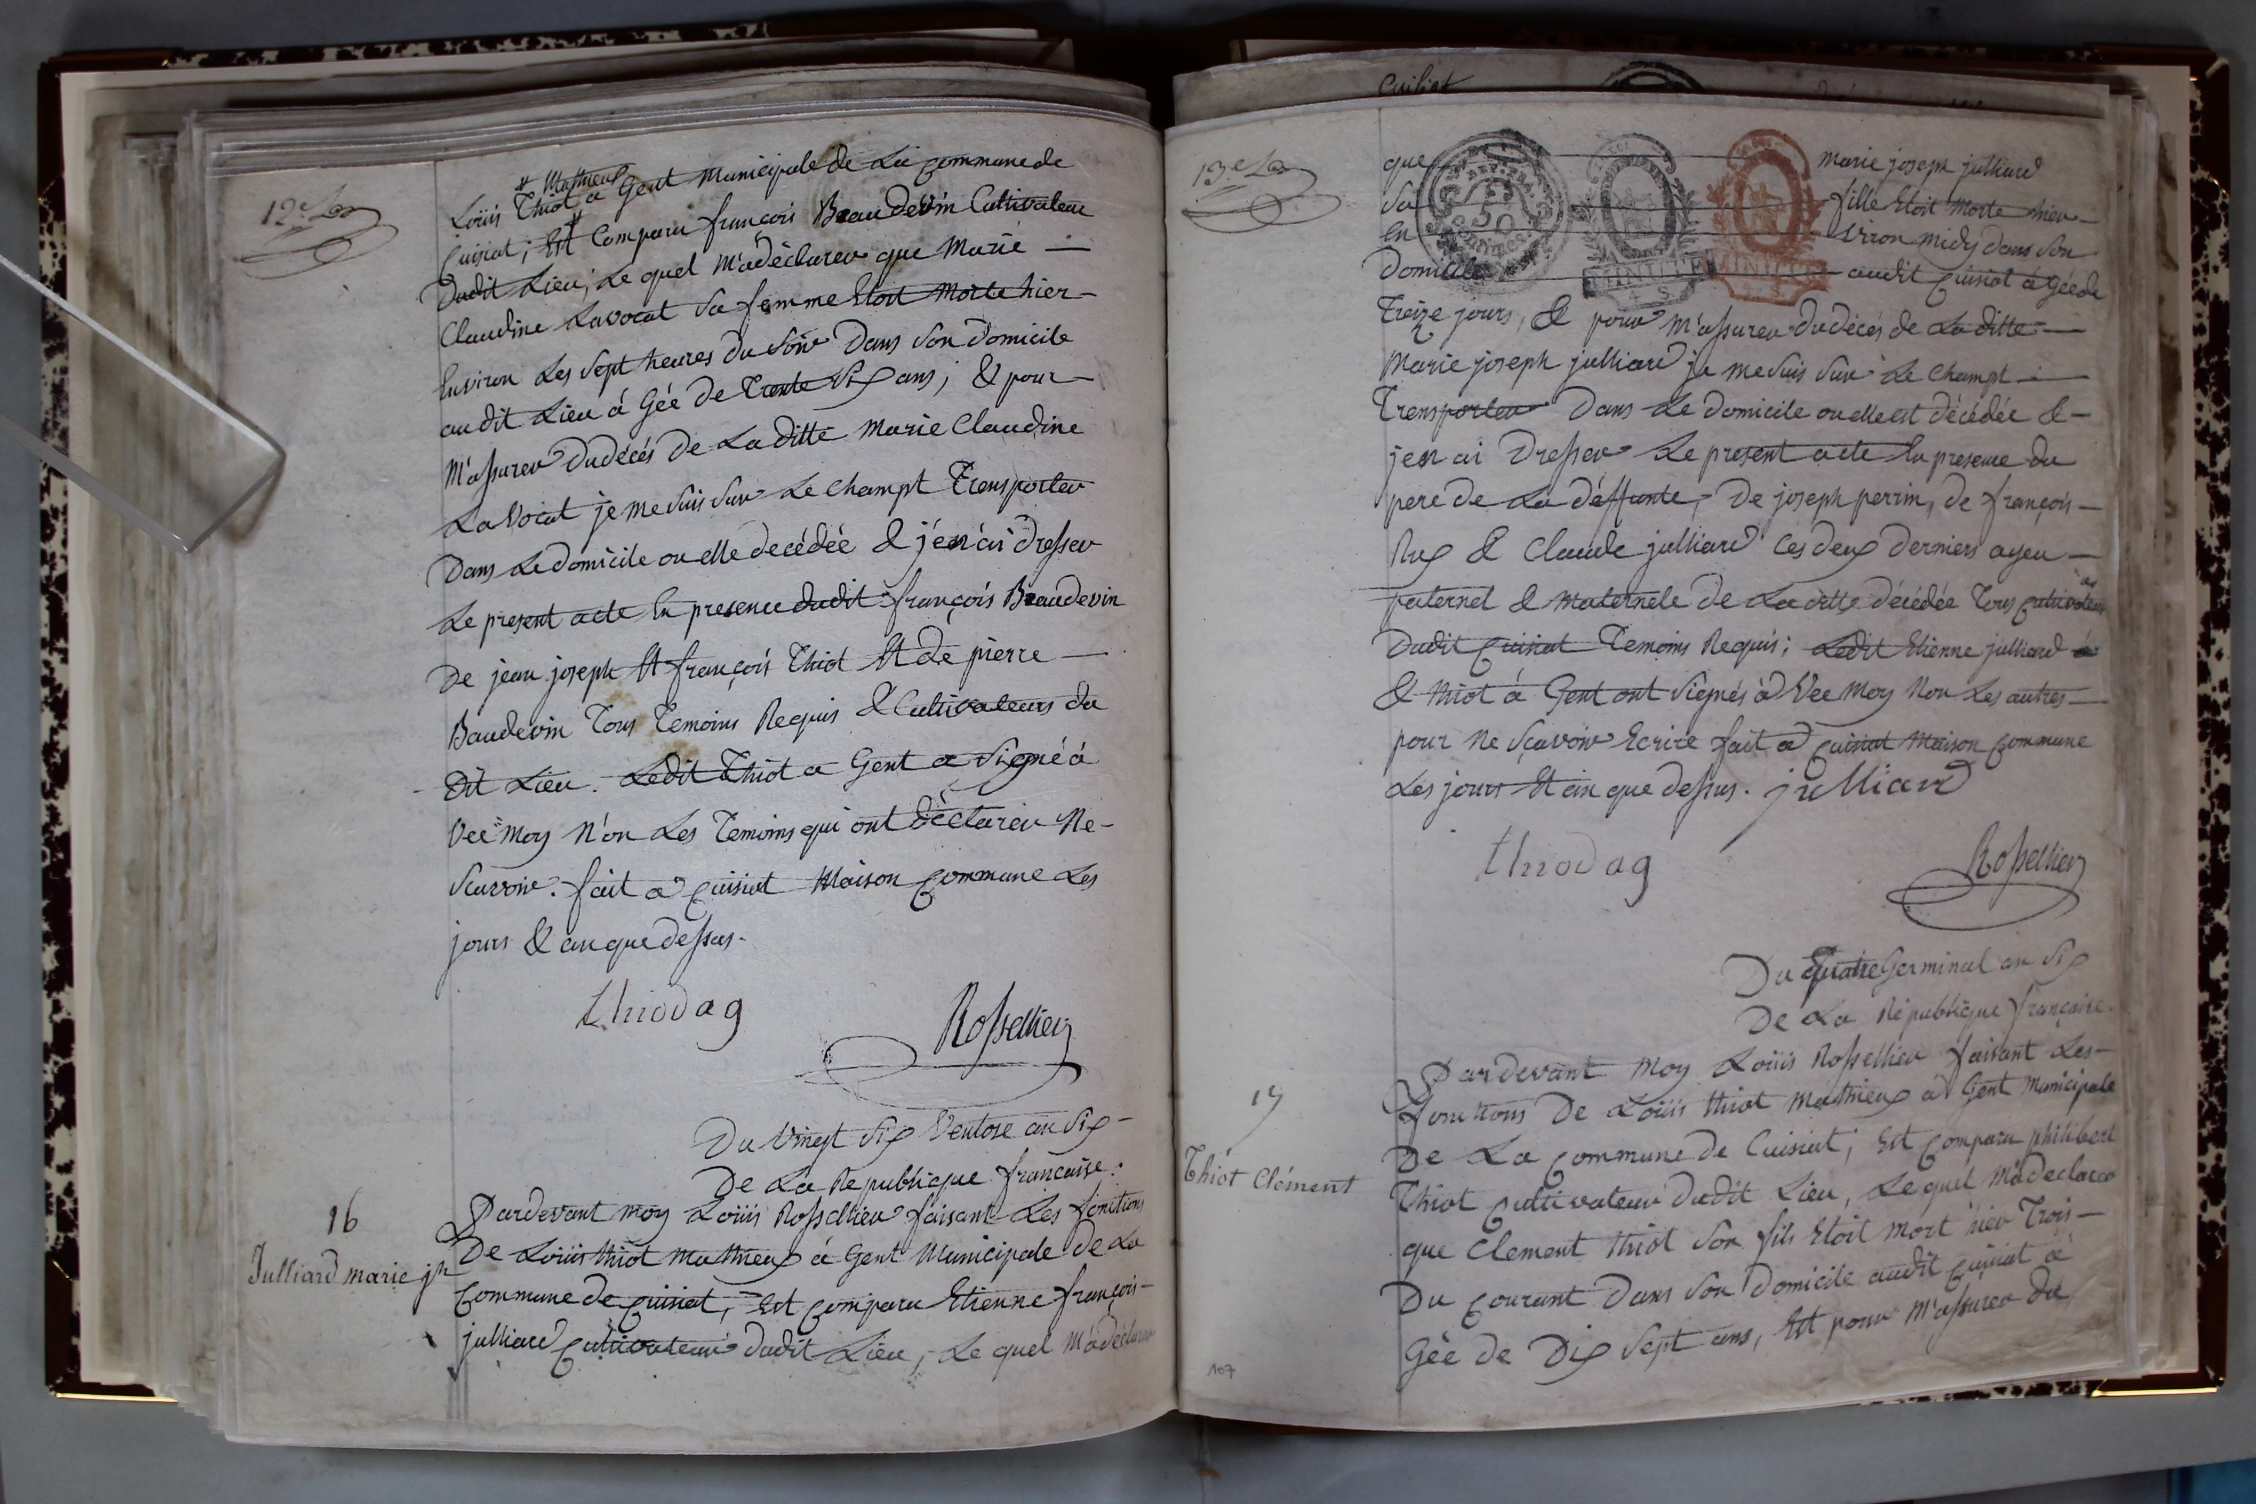 12.e
* Mathieux
Loüis Thiot a Gent Municipale de La Commune de
Cuisiat; Est Comparu françois Beaudevin Cultivateur
Dudit Lieu; Le quel M'adéclarer que Marie —
Claudine Lavocat Sa femme Etoit Morte hier —
Environ Les Sept heures du Soir Dans Son Domicile
audit Lieu á Géé de Trente Six ans; & pour —
M'assurer Dudécés De La ditte Marie Claudine
LaVocat je me Suis Sur Le Champt Trensporter
Dans Le Domicile ou elle decédée & j'én'ai Dresser
Le present acte En presence dudit françois Beaudevin
De jean joseph Et françois Thiot Et de pierre —
Baudevin Tous Temoins Requis & Cultivateurs du
Dit Lieu. Ledit Thiot a Gent a Signé á
Vec Moy N'on Les Temoins qui ont déclarer Ne-
Scavoir. fait a Cuisiat Maison Commune Les
jours & an que dessus.
thiodag
Rossellier
Du Vingt Six Ventose an Six —
De La Republique française.
16
Julliard marie jh
Pardevant Moy Loüis Rossellier faisant Les fonctions
De Loüis thiot Mathieux á Gent Municipale de La
Commune de Cuisiat; Est Comparu Etienne françois —
julliard Cultivateur dudit Lieu, Le quel M'adéclarer
Cuisiat
13.e
que marie joseph julliard
Sa fille Etoit Morte hier —
En Viron Midy dans Son
Domicile audit Cuisiat á Géé de
DEP. FRA
50
Centimes
MINUTE
MINUTE
Treize jours, & pour M'assurer du décés de La ditte —
Marie joseph julliard je me Suis Sur Le Champt —
Trensporter Dans Le Domicile ou elle est décédée & —
jen ai Dresser Le present acte En presence du
pere de La déffunte, De joseph perrin, de françois —
Rux & Claude julliard Ces deux Derniers ayeu —
paternel & Maternele De La ditte décédée Tous Cultivateurs
Dudit Cuisiat Temoins Requis; Ledit Etienne julliard
& thiot á Gent ont Signés à Vec Moy Non Les autres —
pour Ne Sçavoir Ecrire fait a Cuisiat Maison Commune
Les jours Et an que dessus. julliard
thiodag
Rossellier
Du quatre Germinal an Six
De La Republique française.
17
Thiot Clément
Pardevant Moy Loüis Rossellier faisant Les —
fonctions De Loüis thiot Mathieux á Gent Municipale
De La Commune de Cuisiat; Est Comparu philibert
Thiot Cultivateur Dudit Lieu, Le quel M'adeclarer
que Clement thiot Son fils Etoit Mort hier Trois —
Du Courant Dans Son Domicile audit Cuisiat á
Géé de Dix Sept ans, Et pour M'assurer du
107